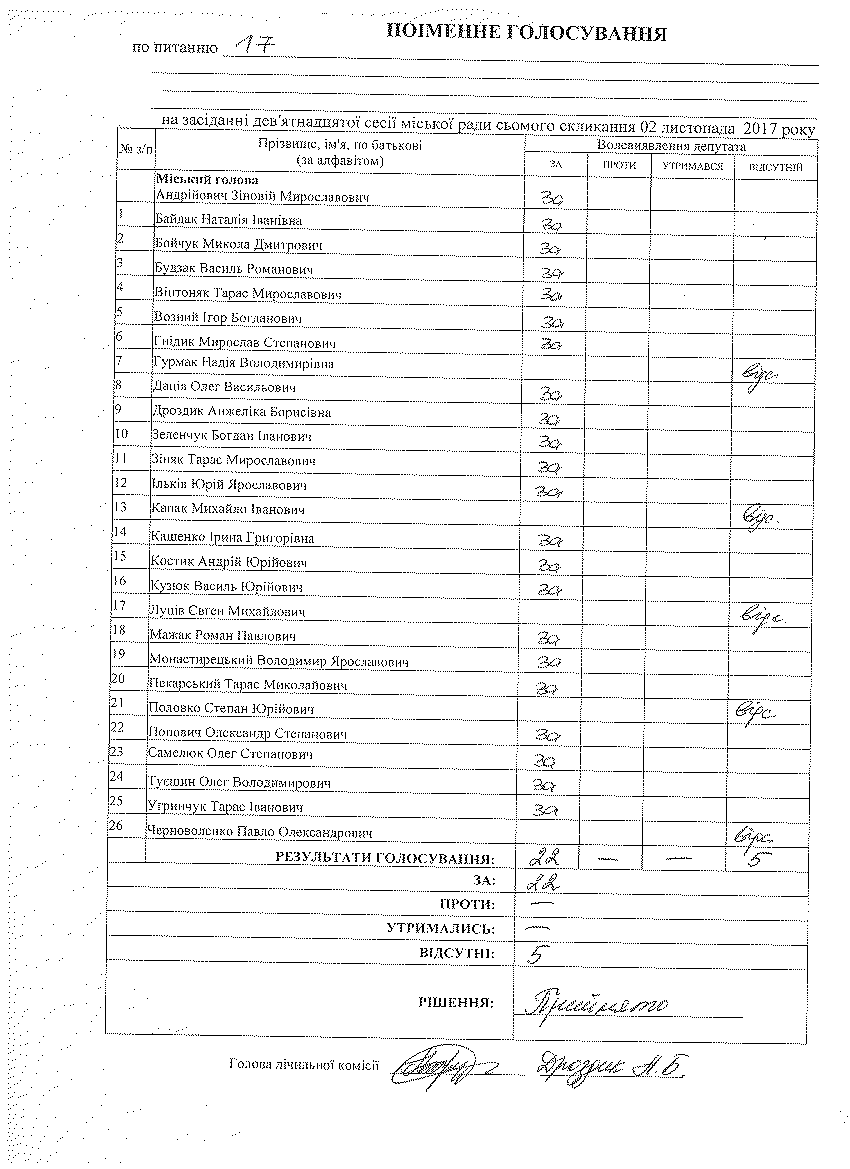 ПОІМЕННЕ ГОЛОСУВАННЯ
по питанню 17
на засіданні дев'ятнадцятої сесії міської ради сьомого скликання 02 листопада 2017 року
№ з/п Прізвище, ім'я, по батькові (за алфавітом) Волевиявлення депутата
ЗА ПРОТИ УТРИМАВСЯ ВІДСУТНІЙ
Міський голова
Андрійович Зіновій Мирославович за
1 Байдак Наталія Іванівна за
2 Бойчук Микола Дмитрович за
3 Будзак Василь Романович за
4 Віштоняк Тарас Мирославович за
5 Возний Ігор Богданович за
6 Гнідик Мирослав Степанович за
7 Гурмак Надія Володимирівна відс.
8 Дація Олег Васильович за
9 Дроздик Анжеліка Борисівна за
10 Зеленчук Богдан Іванович за
11 Зіняк Тарас Мирославович за
12 Ільків Юрій Ярославович за
13 Капак Михайло Іванович відс.
14 Кащенко Ірина Григорівна за
15 Костик Андрій Юрійович за
16 Кузюк Василь Юрійович за
17 Луців Євген Михайлович відс.
18 Мажак Роман Павлович за
19 Монастирецький Володимир Ярославович за
20 Пекарський Тарас Миколайович за
21 Половко Степан Юрійович відс
22 Попович Олександр Степанович за
23 Самелюк Олег Степанович за
24 Туєшин Олег Володимирович за
25 Угринчук Тарас Іванович за
26 Черноволенко Павло Олександрович відс
РЕЗУЛЬТАТИ ГОЛОСУВАННЯ: 22 — — 5
ЗА: 22
ПРОТИ: —
УТРИМАЛИСЬ: —
ВІДСУТНІ: 5
РІШЕННЯ: Прийнято
Голова лічильної комісії Дроздик А.Б.